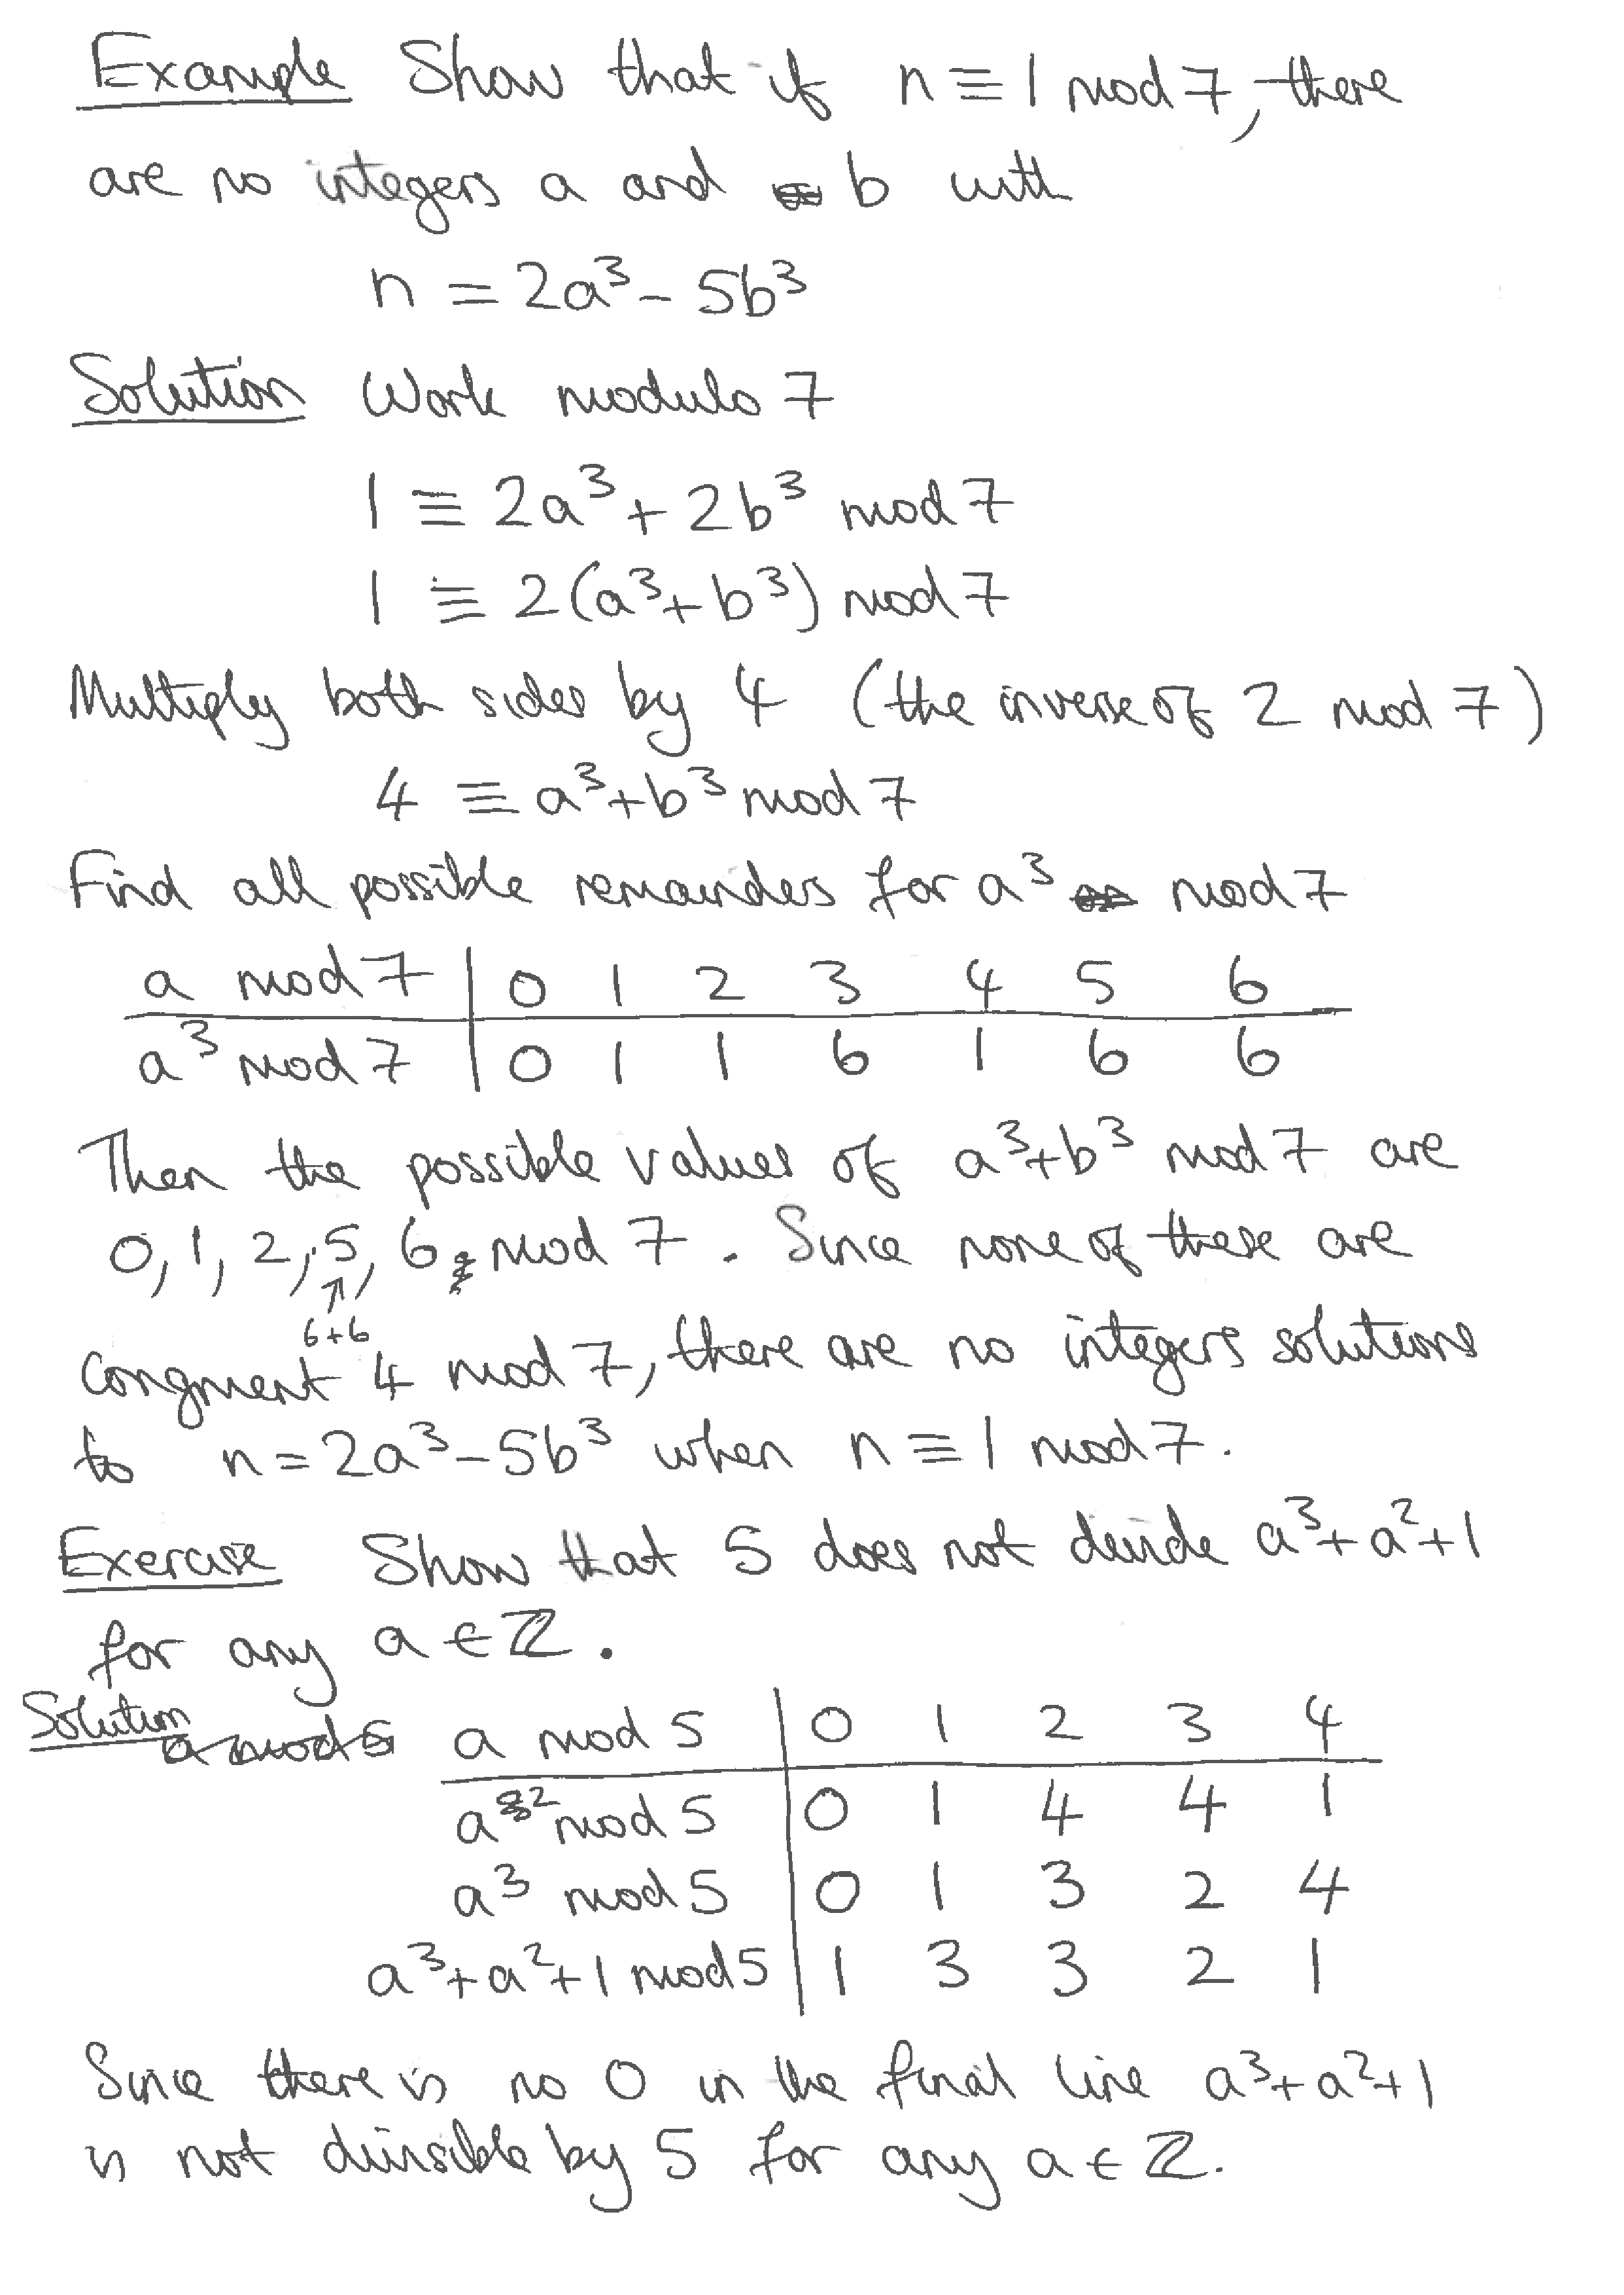 Example Show that if n ≡ 1 mod 7, there
are no integers a and b with
n = 2a³ - 5b³
Solution Work modulo 7
1 ≡ 2a³ + 2b³ mod 7
1 ≡ 2(a³+b³) mod 7
Multiply both sides by 4 (the inverse of 2 mod 7)
4 ≡ a³+b³ mod 7
Find all possible remainders for a³ mod 7
a mod 7 | 0 1 2 3 4 5 6
a³ mod 7 | 0 1 1 6 1 6 6
Then the possible values of a³+b³ mod 7 are
0, 1, 2, 5, 6 mod 7. Since none of these are
↑
6+6
congruent 4 mod 7, there are no integers solutions
to n = 2a³ - 5b³ when n ≡ 1 mod 7.
Exercise Show that 5 does not divide a³+a²+1
for any a ∈ ℤ.
Solution a mod 5 a mod 5 | 0 1 2 3 4
a² mod 5 | 0 1 4 4 1
a³ mod 5 | 0 1 3 2 4
a³+a²+1 mod 5 | 1 3 3 2 1
Since there is no 0 in the final line a³+a²+1
is not divisible by 5 for any a ∈ ℤ.